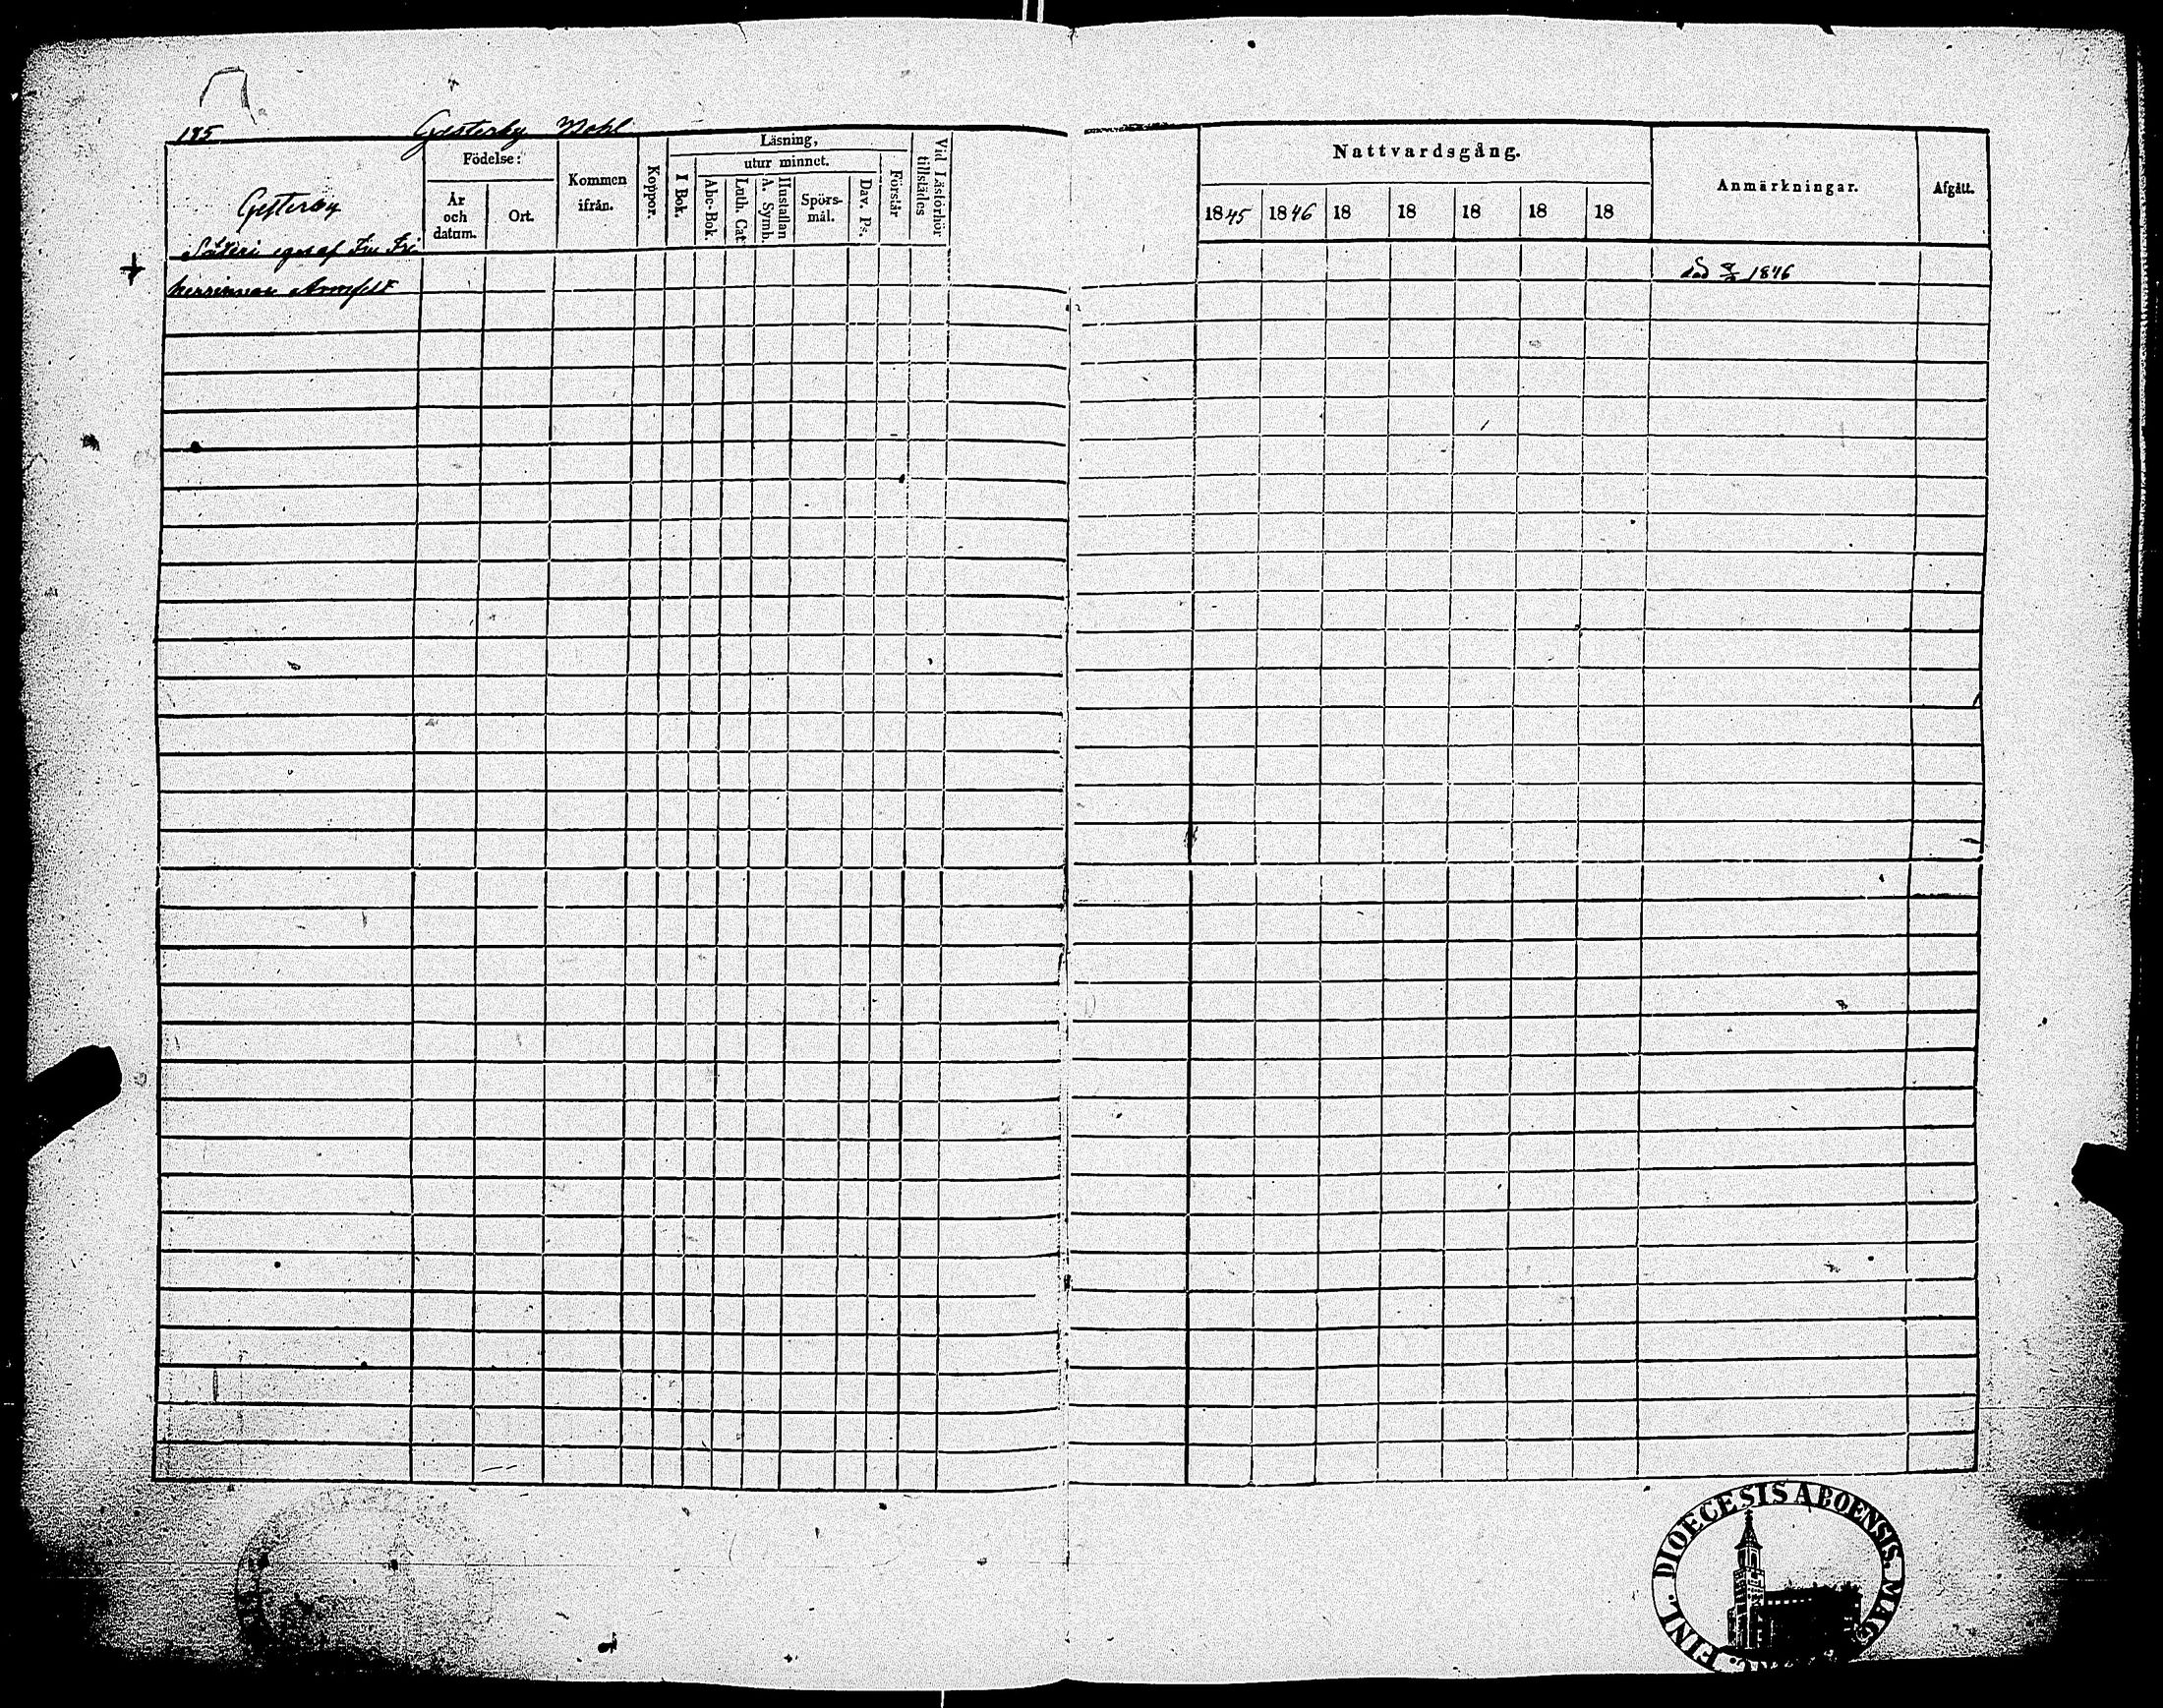 185
Gesterby Wohl
Födelse:
Läsning,
utur minnet.
Vid Läsförhör tillstädes
Gesterby
År och datum.
Ort.
Kommen ifrån.
Koppor.
I Bok.
Abc-Bok.
Luth. Cat.
Hustaflan A. Symb.
Spörs-mål.
Dav. Ps.
Förstår
Säteri eges af Fru Fri
herrinnan Armfelt
Nattvardsgång.
Anmärkningar.
Afgått.
1845 1846 18 18 18 18 18
död 1846
DIOECESIS ABOENSIS. MAG. FINL.